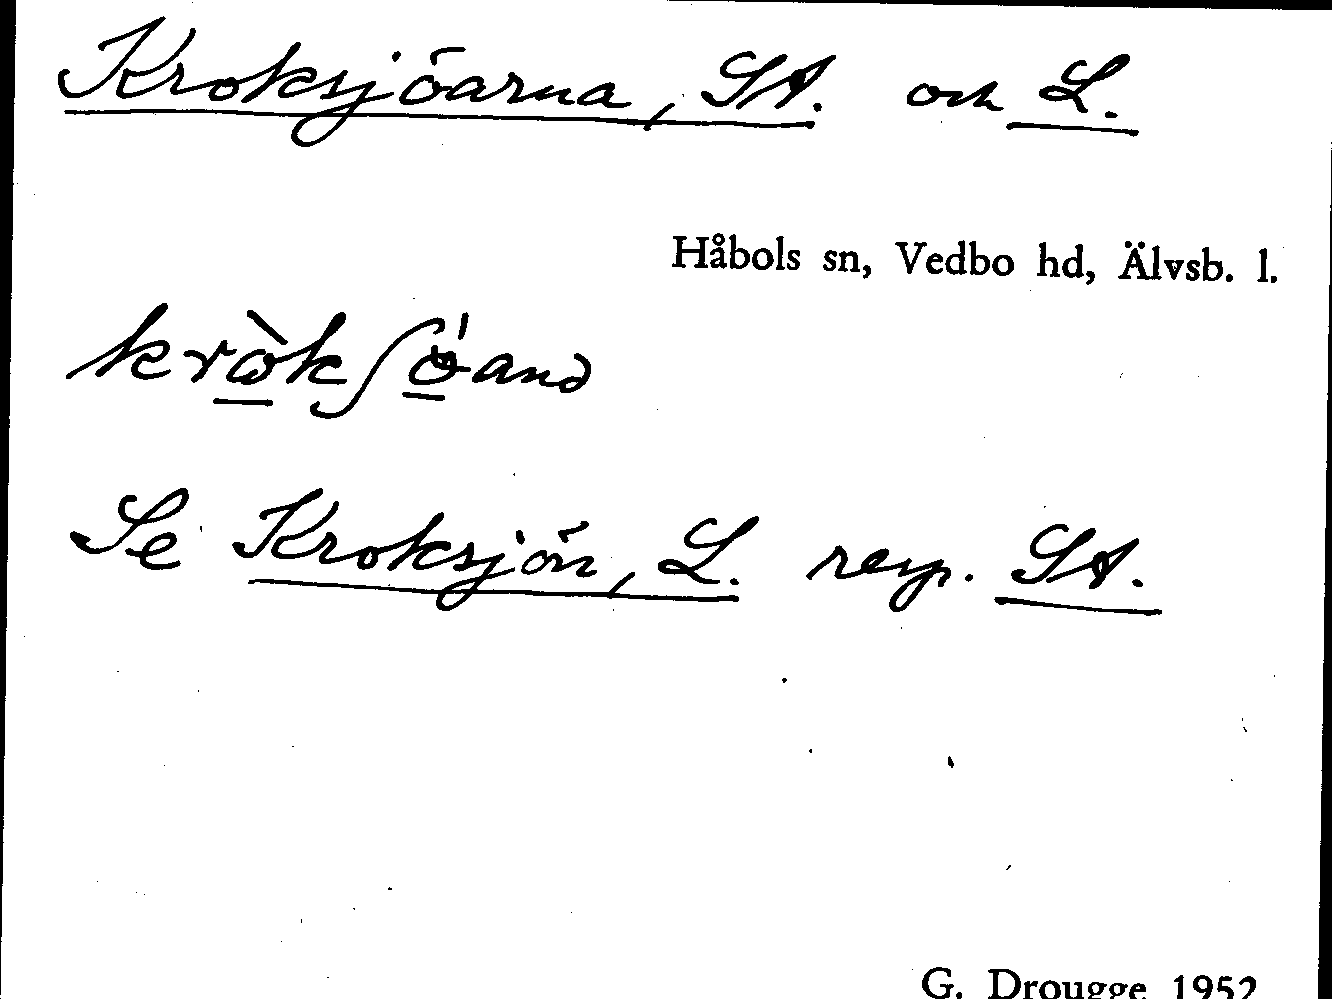 Kroksjöarna, St. och L.
Håbols sn, Vedbo hd, Älvsb. l.
Se Kroksjön, L. resp. St.
G. Drougge 1952